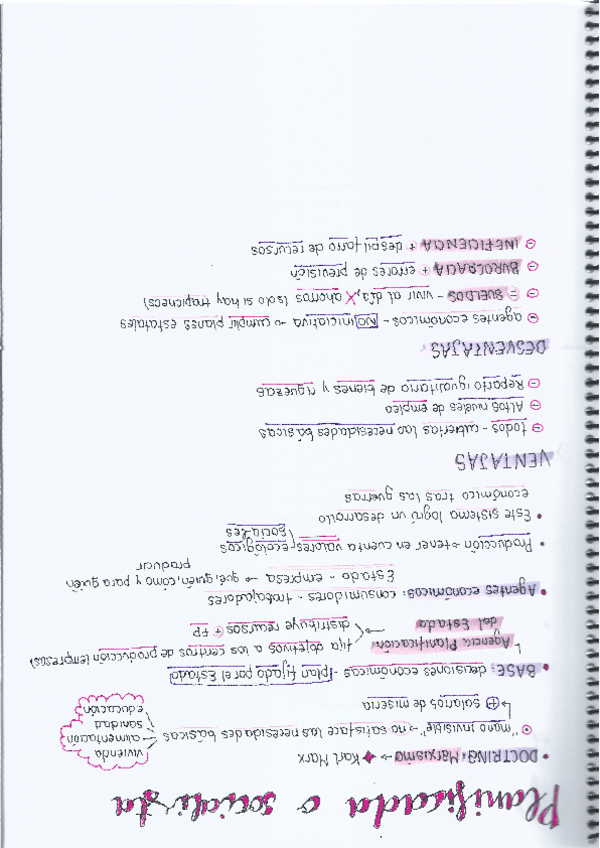 Planificada o socialista
• DOCTRINA: Marxismo → Karl Marx
"mano invisible" → no satisface las necesidades básicas
vivienda
alimentación
sanidad
educación
↳ ⊕ salarios de miseria
• BASE: decisiones económicas - plan fijado por el Estado
↳ Agencia Planificación del Estado
fija objetivos a los centros de producción (empresas)
distribuye recursos + FP
• Agentes económicos: consumidores - trabajadores
Estado - empresa → qué, quién, cómo y para quién producir
• Producción → tener en cuenta valores ecológicos
sociales
• Este sistema logró un desarrollo
económico tras las guerras
VENTAJAS
⊖ todos - cubiertas las necesidades básicas
⊖ Altos niveles de empleo
⊖ Reparto igualitario de bienes y riquezas
DESVENTAJAS
⊖ agentes económicos - NO iniciativa → cumplir planes estatales
⊖ = SUELDOS - vivir al día, X ahorros (solo si hay trapicheos)
⊖ BUROCRACIA + errores de previsión
⊖ INEFICIENCIA + despilfarro de recursos